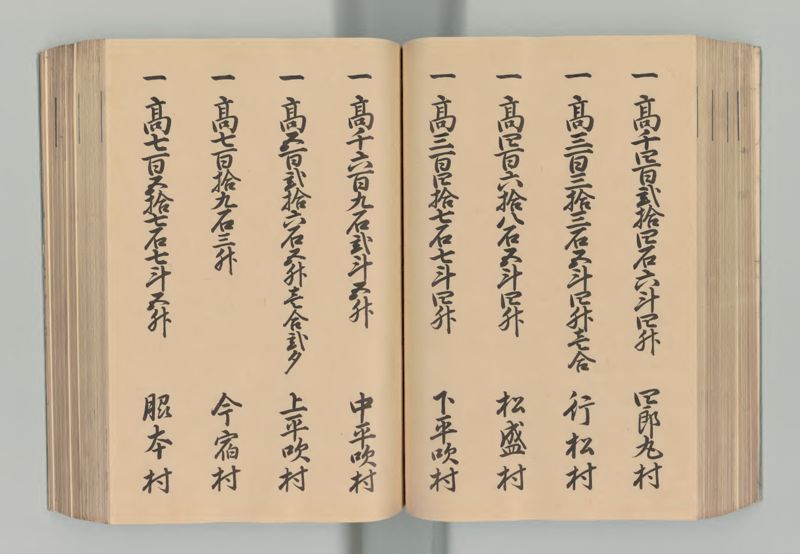 一 高千四百弐拾四石六斗四升 四郎丸村
一 高三百三拾三石五斗四升壱合 行松村
一 高四百六拾八石五斗四升 松盛村
一 高三百四拾七石七斗四升 下平吹村
一 高千六百九石弐斗五升 中平吹村
一 高五百弐拾六石五升壱合弐夕 上平吹村
一 高七百拾九石三升 今宿村
一 高七百五拾七石七斗五升 脇本村